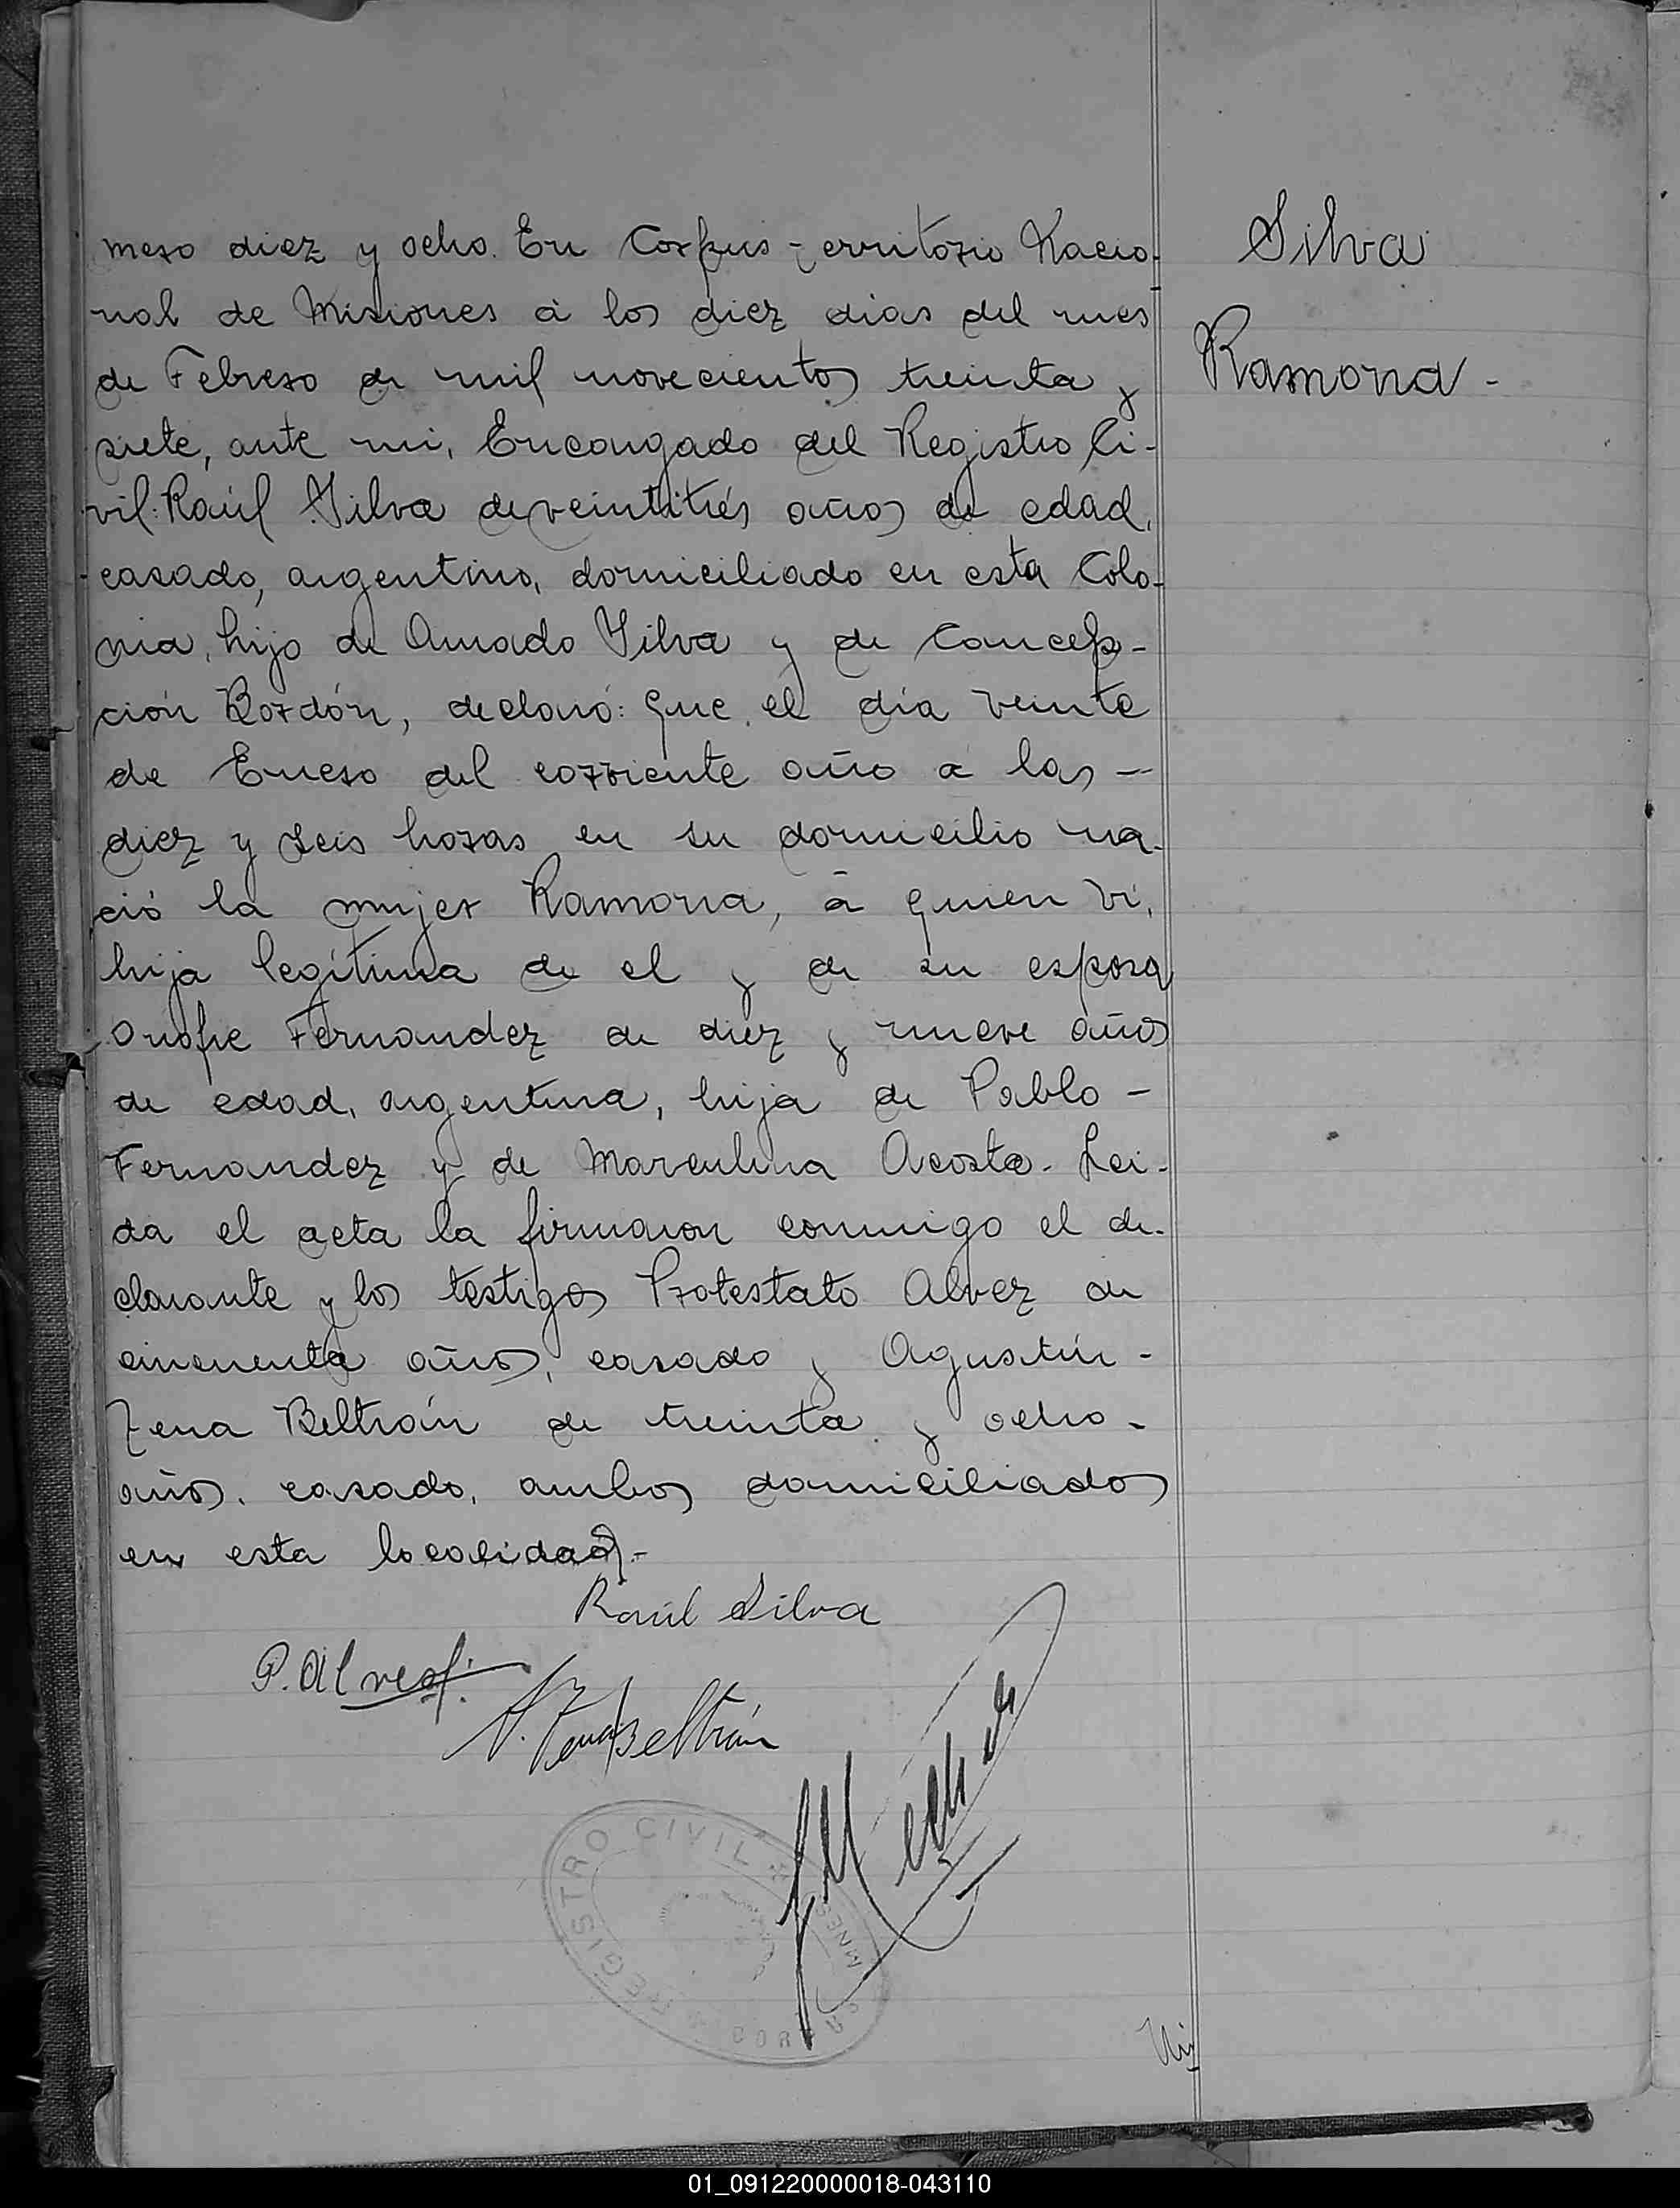 mero diez y ocho. En Corpus territorio Nacio-
nal de Misiones á los diez dias del mes
de Febrero de mil novecientos treinta y
siete, ante mi, Encargado del Registro Ci-
vil: Raúl Silva de veintitrés años de edad,
casado, argentino, domiciliado en esta Colo-
nia, hijo de Amado Silva y de Concep-
ción Bordón, declaró: Que el día veinte
de Enero del corriente año a las -
diez y seis horas en su domicilio na-
ció la mujer Ramona, á quien vi,
hija legítima de el y de su esposa
Onofre Fernandez de diez y nueve años
de edad, argentina, hija de Pablo -
Fernandez y de Marculina Acosta. Lei-
da el acta la firmaron conmigo el de-
clarante y los testigos Protestato Alvez de
cincuenta años, casado y Agustín -
Zena Beltrán de treinta y ocho -
años, casado, ambos domiciliados
en esta localidad.-
Silva
Ramona -
Raúl Silva
P. Alves
A. Zena Beltrán
REGISTRO CIVIL
MNES
CORPUS
01_091220000018-043110